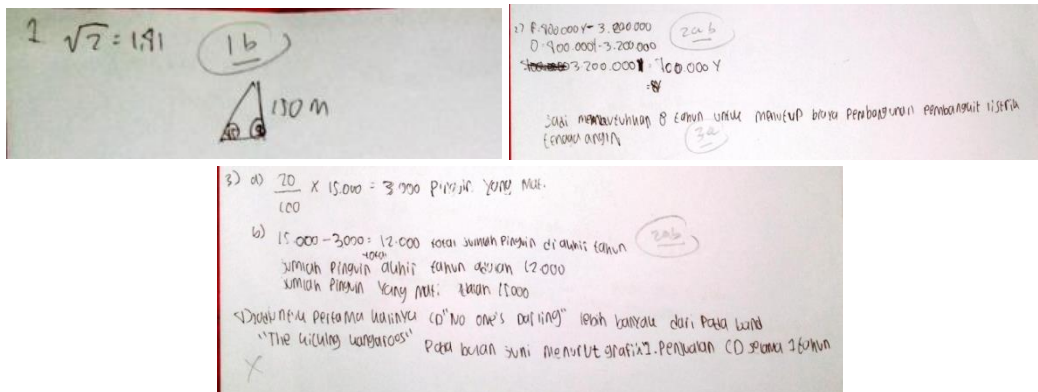 1 √2 = 1,41
1b
150 m
2) F = 400.000 Y - 3.200.000
2ab
0 = 400.000Y - 3.200.000
3.200.000 = 400.000 Y
= 8
Jadi membutuhkan 8 tahun untuk menutup biaya pembangunan pembangkit listrik
tenaga angin
3a
3) a) 20/100 x 15.000 = 3000 Pinguin yang mati.
b) 15.000 - 3000 = 12.000 total jumlah Pinguin di akhir tahun
2ab
jumlah Pinguin akhir tahun adalah 12.000
total
jumlah Pinguin yang mati adalah
untuk pertama kalinya CD "No one's Darling" lebih banyak dari Pada band
"The kicking kangaroos" Pada bulan juni menurut grafik 1. Penjualan CD selama 1 tahun
X